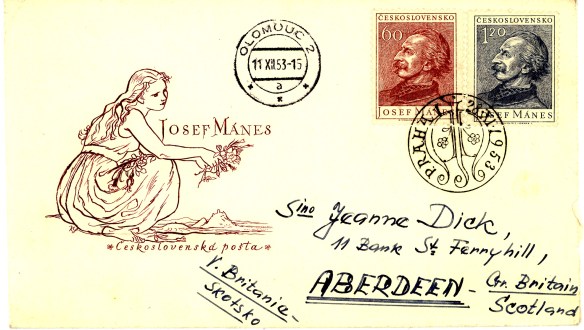 OLOMOUC 2
11 XII 53-15
a
ČESKOSLOVENSKO
60
JOSEF MÁNES
ČESKOSLOVENSKO
1.20
JOSEF MÁNES
JOSEF MÁNES
PRAHA 1 28.XI.1953
Československá pošta
Sino Jeanne Dick,
11 Bank St. Ferryhill,
ABERDEEN - Gr. Britain
Scotland
V. Britanie -
Skotsko